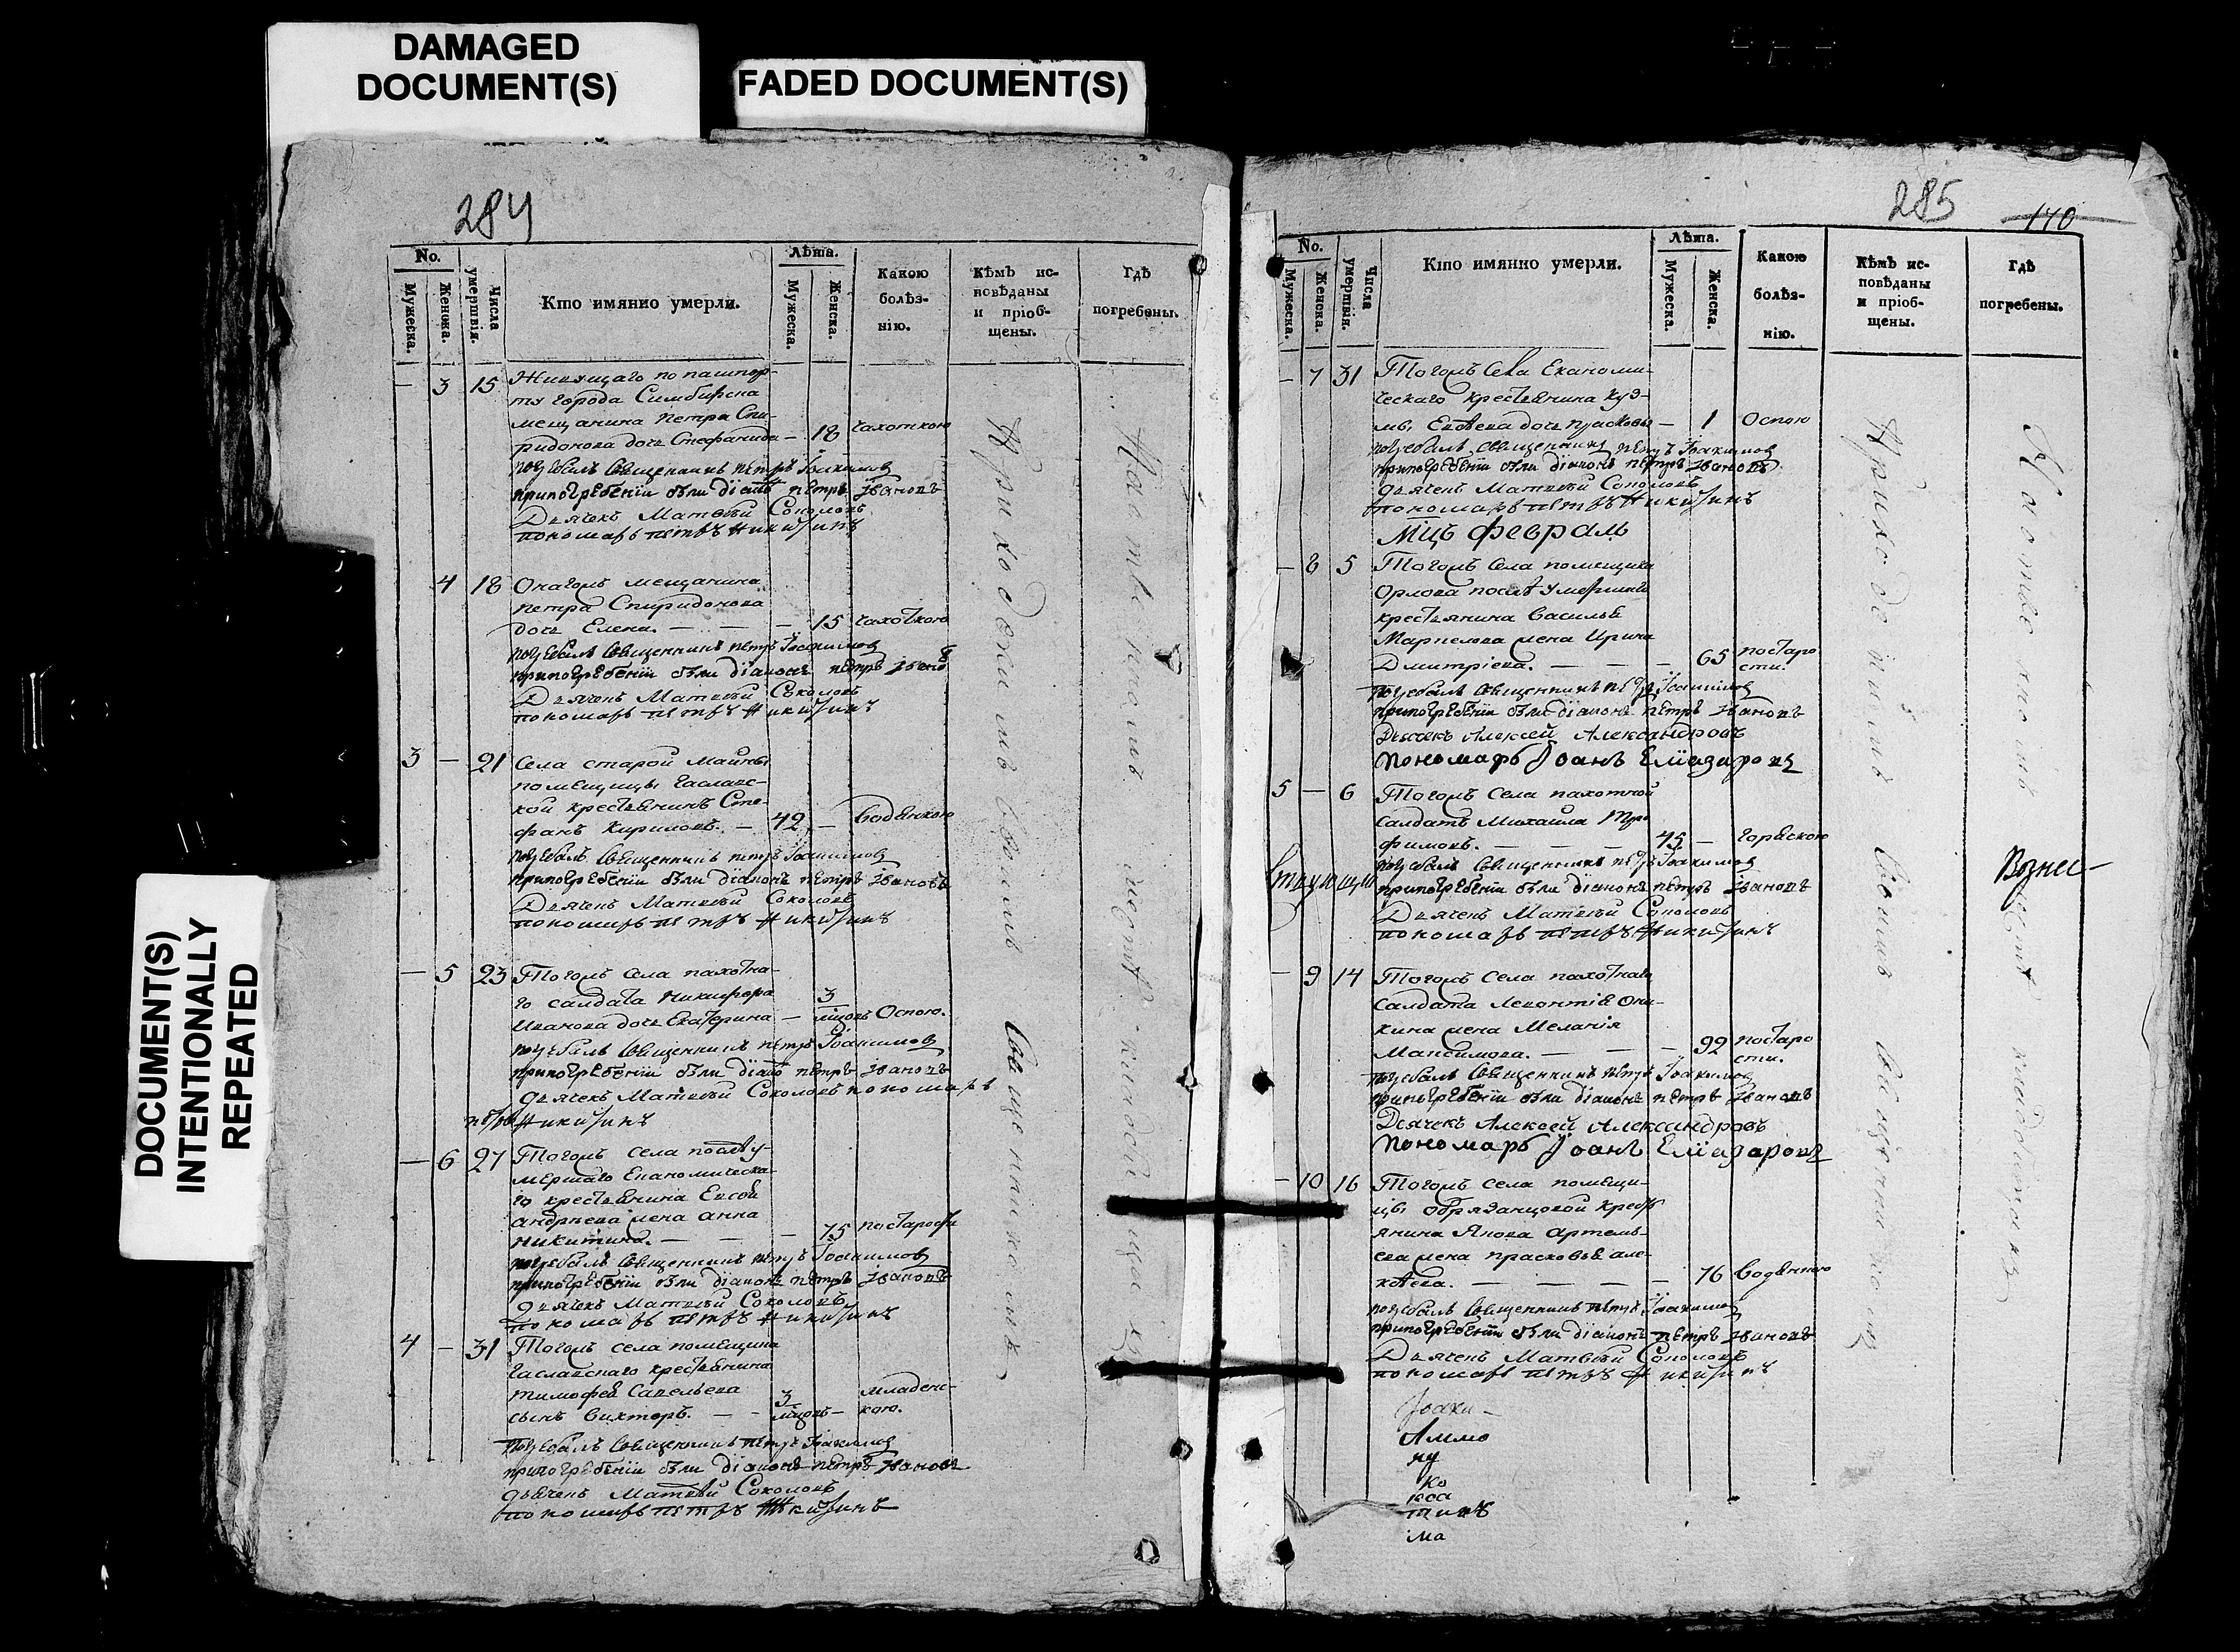 DAMAGED
DOCUMENT(S)
FADED DOCUMENT(S)
DOCUMENT(S)
INTENTIONALLY
REPEATED
284
No.
Мужеска.
Женска.
Числа
умертвія.
Кто имянно умерли.
Лѣта.
Мужеска.
Женска.
Какою
болѣз-
нію.
Кѣмъ ис-
повѣданы
и пріоб-
щены.
Гдѣ
погребены.
— 3 15 Живущаго по пашпор-
ту города Симбирска
мещанина Петра Спи-
ридонова дочь Стефанида — 18 чахоткою
погребалъ священникъ петръ Іоакимовъ
припогребеніи были діаконъ петръ Ивановъ
Дьячекъ Матвей Соколовъ
пономарь петръ Никитинъ
4 18 Онагожъ мещанина
петра Спиридонова
дочь Елена. — — — 15 чахоткою
погребалъ священникъ петръ Іоакимовъ
припогребеніи были діаконъ петръ Ивановъ
Дьячекъ Матвей Соколовъ
пономарь петръ Никитинъ
3 — 21 Села старой Майны
помещицы Часлав-
ской крестьянинъ Сте-
фанъ Кириловъ. — 42 — водянкою
погребалъ священникъ петръ Іоакимовъ
припогребеніи были діаконъ петръ Ивановъ
Дьячекъ Матвей Соколовъ
пономарь петръ Никитинъ
— 5 23 Тогожъ села пахотна-
го салдата Никифора
Иванова дочь Екатерина — 3 мцовъ Оспою.
погребалъ священникъ петръ Іоакимовъ
припогребеніи были діаконъ петръ Ивановъ
дьячекъ Матвей Соколовъ пономарь
петръ Никитинъ
— 6 27 Тогожъ села послѣ у-
мершаго Економическа-
го крестьянина Евсея
андреева жена анна
никитина. — — — 75 по старости
погребалъ священникъ петръ Іоакимовъ
припогребеніи были діаконъ петръ Ивановъ
дьячекъ Матвей Соколовъ
пономарь петръ Никитинъ
4 — 31 Тогожъ села помещика
Чаславскаго крестьянина
тимофея Савельева
сынъ Викторъ. — — 3 мцовъ — младенс-
кою.
погребалъ священникъ петръ Іоакимовъ
припогребеніи были діаконъ петръ Ивановъ
дьячекъ Матвей Соколовъ
пономарь петръ Никитинъ
Приходскимъ своимъ Священникомъ
На
285
170
No.
Мужеска.
Женска.
Числа
умертвія.
Кто имянно умерли.
Лѣта.
Мужеска.
Женска.
Какою
болѣз-
нію.
Кѣмъ ис-
повѣданы
и пріоб-
щены.
Гдѣ
погребены.
— 7 31 Тогожъ Села Економи-
ческаго крестьянина Куз-
мы Евсева дочь прасковья — 1 Оспою
погребалъ священникъ петръ Іоакимовъ
припогребеніи были діаконъ петръ Ивановъ
дьячекъ Матвей Соколовъ
пономарь петръ Никитинъ
Мцъ февраль
— 8 5 Тогожъ Села помещика
Орлова послѣ умершаго
крестьянина Василья
Маркелова жена Ирина
Дмитріева. — — — 65 по старо
сти.
погребалъ священникъ петръ Іоакимовъ
припогребеніи были діаконъ петръ Ивановъ
Дьячекъ Алексей Александровъ
Пономарь Іоанъ Еліазаровъ
5 — 6 Тогожъ Села пахотной
салдатъ Михаила Тро
фимовъ. — — — 45 — горячкою
погребалъ священникъ петръ Іоакимовъ
припогребеніи были діаконъ петръ Ивановъ
Дьячекъ Матвей Соколовъ
пономарь петръ Никитинъ
Вознес-
— 9 14 Тогожъ Села пахотнаго
Салдата Левонтія Они-
кина жена Меланія
Максимова. — — — 92 по старо
сти.
погребалъ священникъ петръ Іоакимовъ
припогребеніи были діаконъ петръ Ивановъ
Дьячекъ Алексей Александровъ
Пономарь Іоанъ Еліазаровъ
— 10 16 Тогожъ села помещи-
цы Обрязанцовой крестъ
янина Якова Артемь-
ева жена прасковья але-
ксеева. — — — — 76 водянкою
погребалъ священникъ петръ Іоакимовъ
припогребеніи были діаконъ петръ Ивановъ
Дьячекъ Матвей Соколовъ
пономарь петръ Никитинъ
Приходскимъ Своимъ Священникомъ
Іоаки-
ко
ма